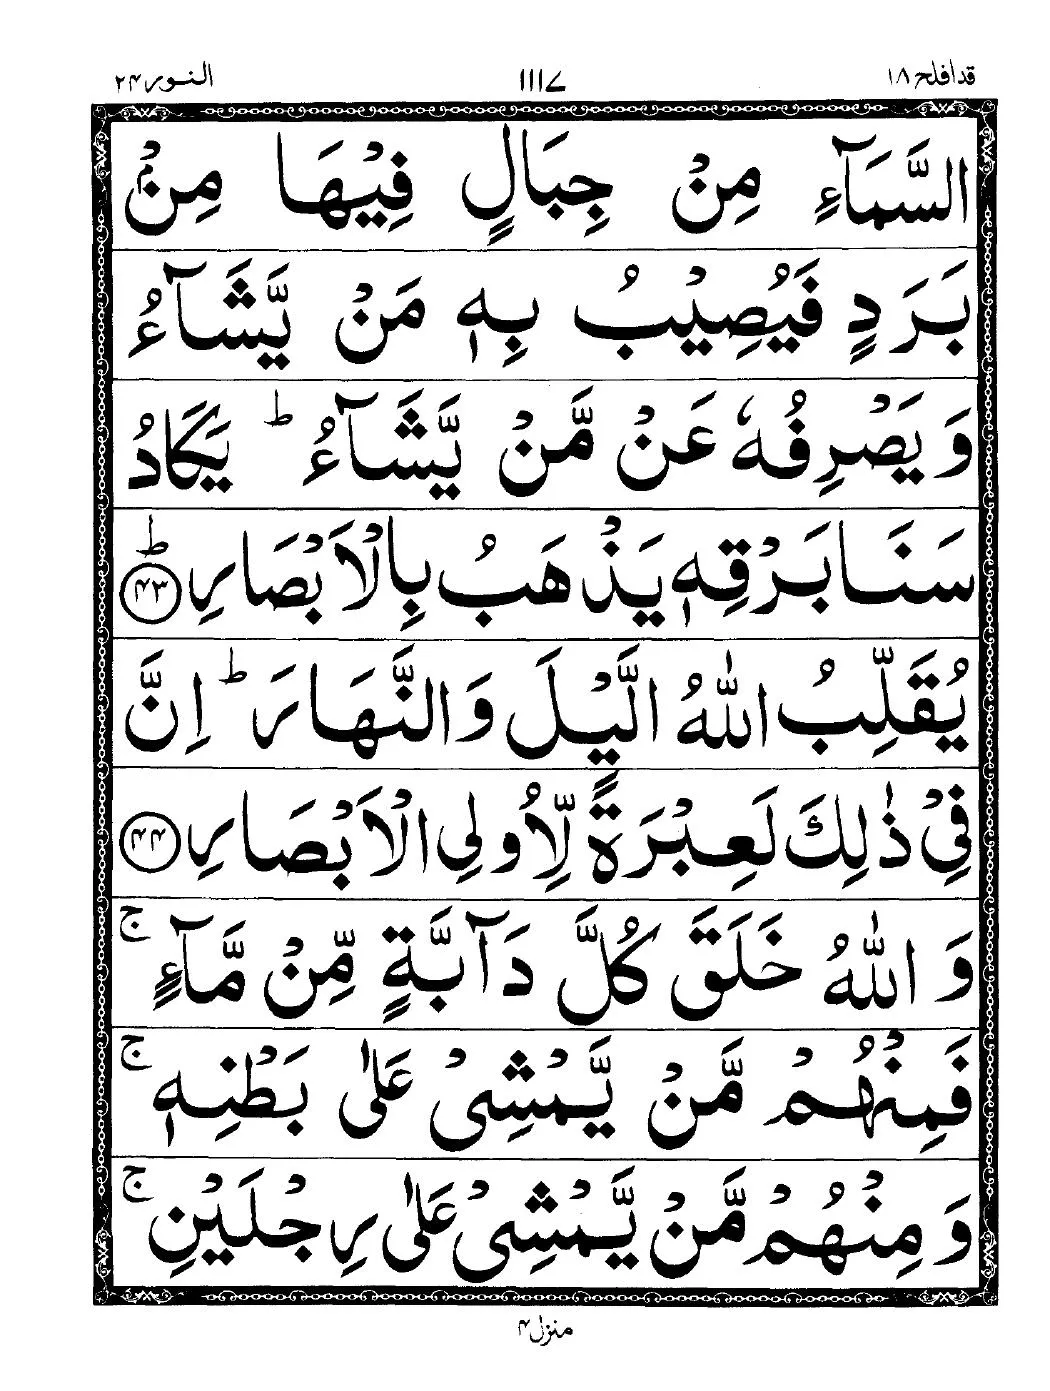 قد افلح ۱۸ ۱۱۱۷ النور ۲۴
السَّمَآءِ مِنْ جِبَالٍ فِيْهَا مِنْۢ
بَرَدٍ فَيُصِيْبُ بِهٖ مَنْ يَّشَآءُ
وَ يَصْرِفُهٗ عَنْ مَّنْ يَّشَآءُ ؕ يَكَادُ
سَنَا بَرْقِهٖ يَذْهَبُ بِالْاَبْصَارِ ؕ۴۳
يُقَلِّبُ اللّٰهُ الَّيْلَ وَ النَّهَارَ ؕ اِنَّ
فِيْ ذٰلِكَ لَعِبْرَةً لِّاُولِي الْاَبْصَارِ ۴۴
وَ اللّٰهُ خَلَقَ كُلَّ دَآبَّةٍ مِّنْ مَّآءٍ ۚ
فَمِنْهُمْ مَّنْ يَّمْشِيْ عَلٰى بَطْنِهٖ ۚ
وَ مِنْهُمْ مَّنْ يَّمْشِيْ عَلٰى رِجْلَيْنِ ۚ
منزل ۴